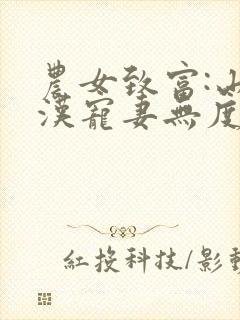 農女致富:山
漢寵妻無度
紅投科技/影動